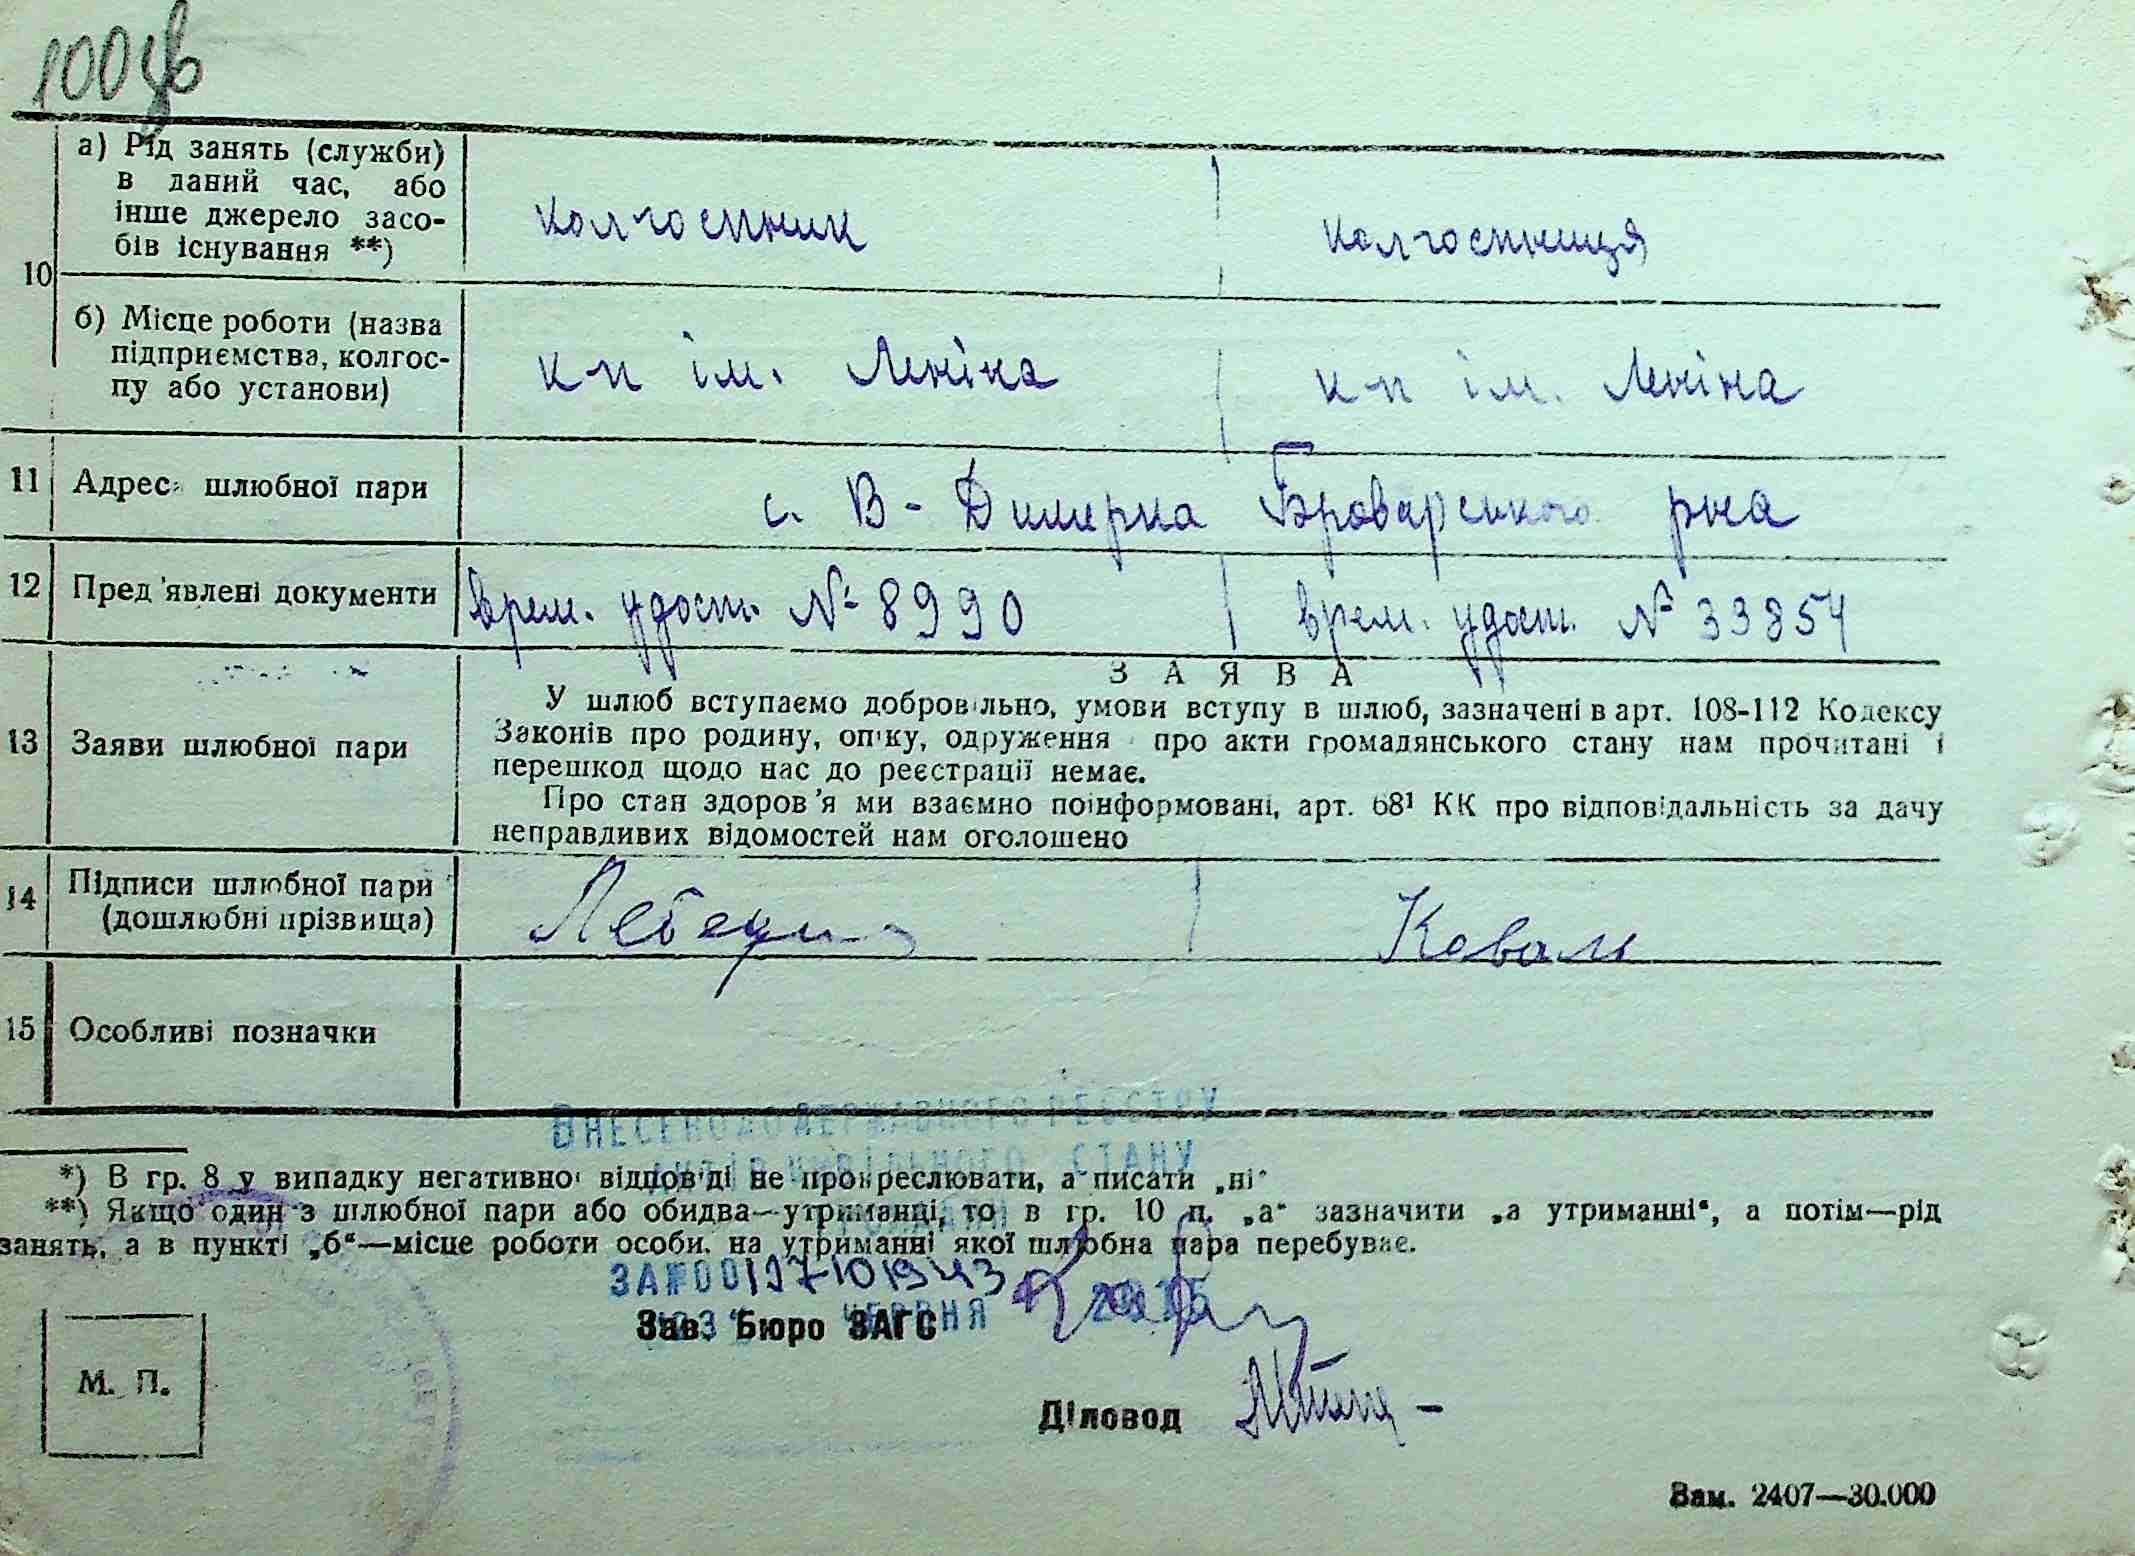 100зв
10
а) Рід занять (служби)
в даний час, або
інше джерело засо-
бів існування **)
колгоспник
колгоспниця
б) Місце роботи (назва
підприємства, колгос-
пу або установи)
к-п ім. Леніна
к-п ім. Леніна
11 Адреса шлюбної пари
с. В-Димерка Броварського р-на
12 Пред'явлені документи
врем. удост. № 8990
врем. удост. № 33854
ЗАЯВА
13 Заяви шлюбної пари
У шлюб вступаємо добровільно, умови вступу в шлюб, зазначені в арт. 108-112 Кодексу
Законів про родину, опіку, одруження про акти громадянського стану нам прочитані і
перешкод щодо нас до реєстрації немає.
Про стан здоров'я ми взаємно поінформовані, арт. 68¹ КК про відповідальність за дачу
неправдивих відомостей нам оголошено
14 Підписи шлюбної пари
(дошлюбні прізвища)
Коваль
15 Особливі позначки
ВНЕСЕНО ДО ДЕРЖАВНОГО РЕЄСТРУ
АКТІВ ЦИВІЛЬНОГО СТАНУ
*) В гр. 8 у випадку негативної відповіді не прокреслювати, а писати „ні"
**) Якщо один з шлюбної пари або обидва—утриманці, то в гр. 10 п. „а" зазначити „а утриманні", а потім—рід
занять, а в пункті „б"—місце роботи особи, на утриманні якої шлюбна пара перебуває.
ЗА №00197101943
ЧЕРВНЯ
Зав. Бюро ЗАГС
М. П.
Діловод
Зам. 2407—30.000